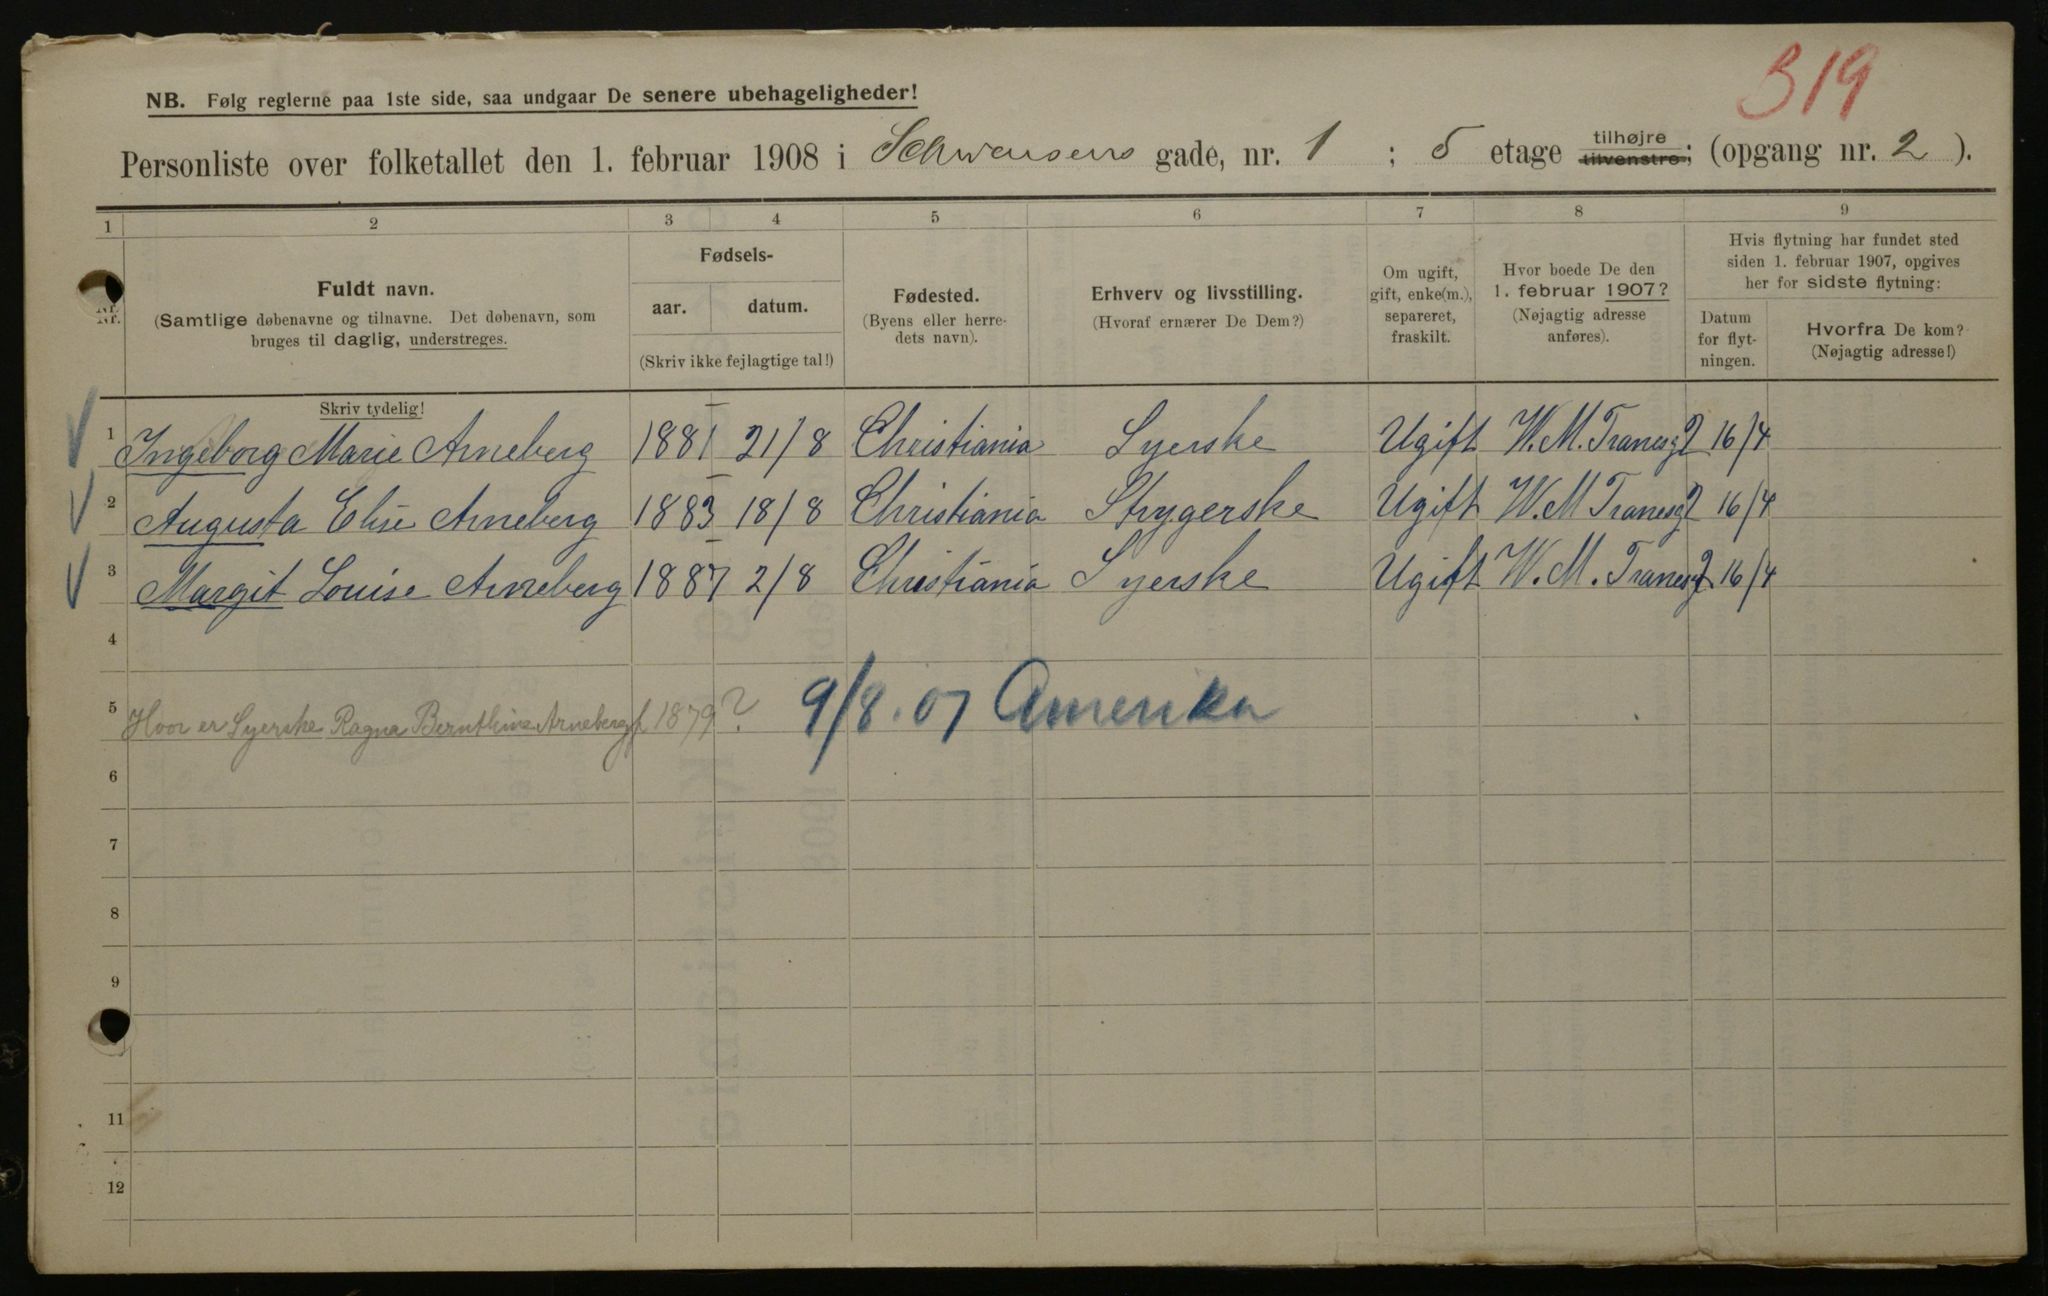 319
NB. Følg reglerne paa 1ste side, saa undgaar De senere ubehageligheder!
Personliste over folketallet den 1. februar 1908 i Schwensens gade, nr. 1 ; 5 etage tilhøjre tilvenstre; (opgang nr. 2 ).
1 2 3 4 5 6 7 8 9
Nr.
Fuldt navn.
(Samtlige døbenavne og tilnavne. Det døbenavn, som
bruges til daglig, understreges.
Fødsels-
aar. datum.
(Skriv ikke fejlagtige tal!)
Fødested.
(Byens eller herre-
dets navn).
Erhverv og livsstilling.
(Hvoraf ernærer De Dem?)
Om ugift,
gift, enke(m.),
separeret,
fraskilt.
Hvor boede De den
1. februar 1907?
(Nøjagtig adresse
anføres).
Hvis flytning har fundet sted
siden 1. februar 1907, opgives
her for sidste flytning:
Datum
for flyt-
ningen.
Hvorfra De kom?
(Nøjagtig adresse!)
Skriv tydelig!
1 Ingeborg Marie Arneberg 1881 21/8 Christiania Syerske Ugift W. M. Tranesg 2 16/4
2 Augusta Elise Arneberg 1883 18/8 Christiania Strygerske Ugift W. M Tranesg 2 16/4
3 Margit Louise Arneberg 1887 2/8 Christiania Syerske Ugift W. M. Tranesg 2 16/4
4
5 Hvor er Syerske Ragna Bernthine Arneberg f 1879? 9/8.07 Amerika
6
7
8
9
11
12